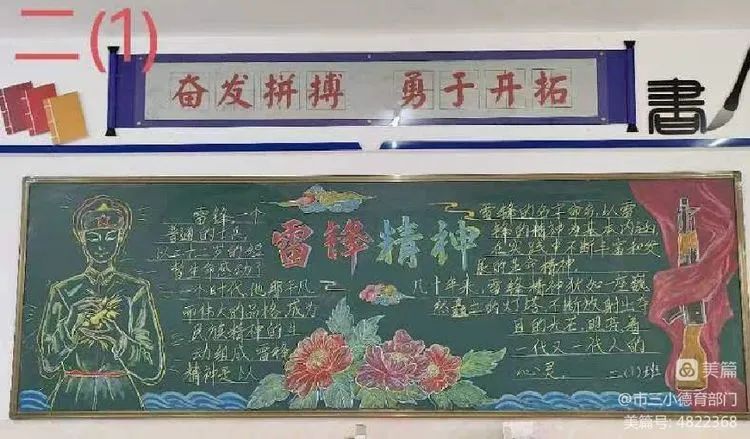 二(1)
奋发拼搏 勇于开拓
書
雷锋精神
雷锋一个
普通的
以二十二岁的短
暂生命感动了
一个时代,他那平凡
而伟大的品格,成为
民族精神的生
动组成 雷锋
精神是以
雷锋的名字命名,以雷
锋的精神为基本内涵
在实践中不断丰富和发
展的革命精神
几十年来,雷锋精神犹如一座巍
然矗立的灯塔,不断放射出夺
目的光芒,照亮着
一代又一代人的
心灵。 二(1)班
美篇
@市三小德育部门
美篇号: 4822368